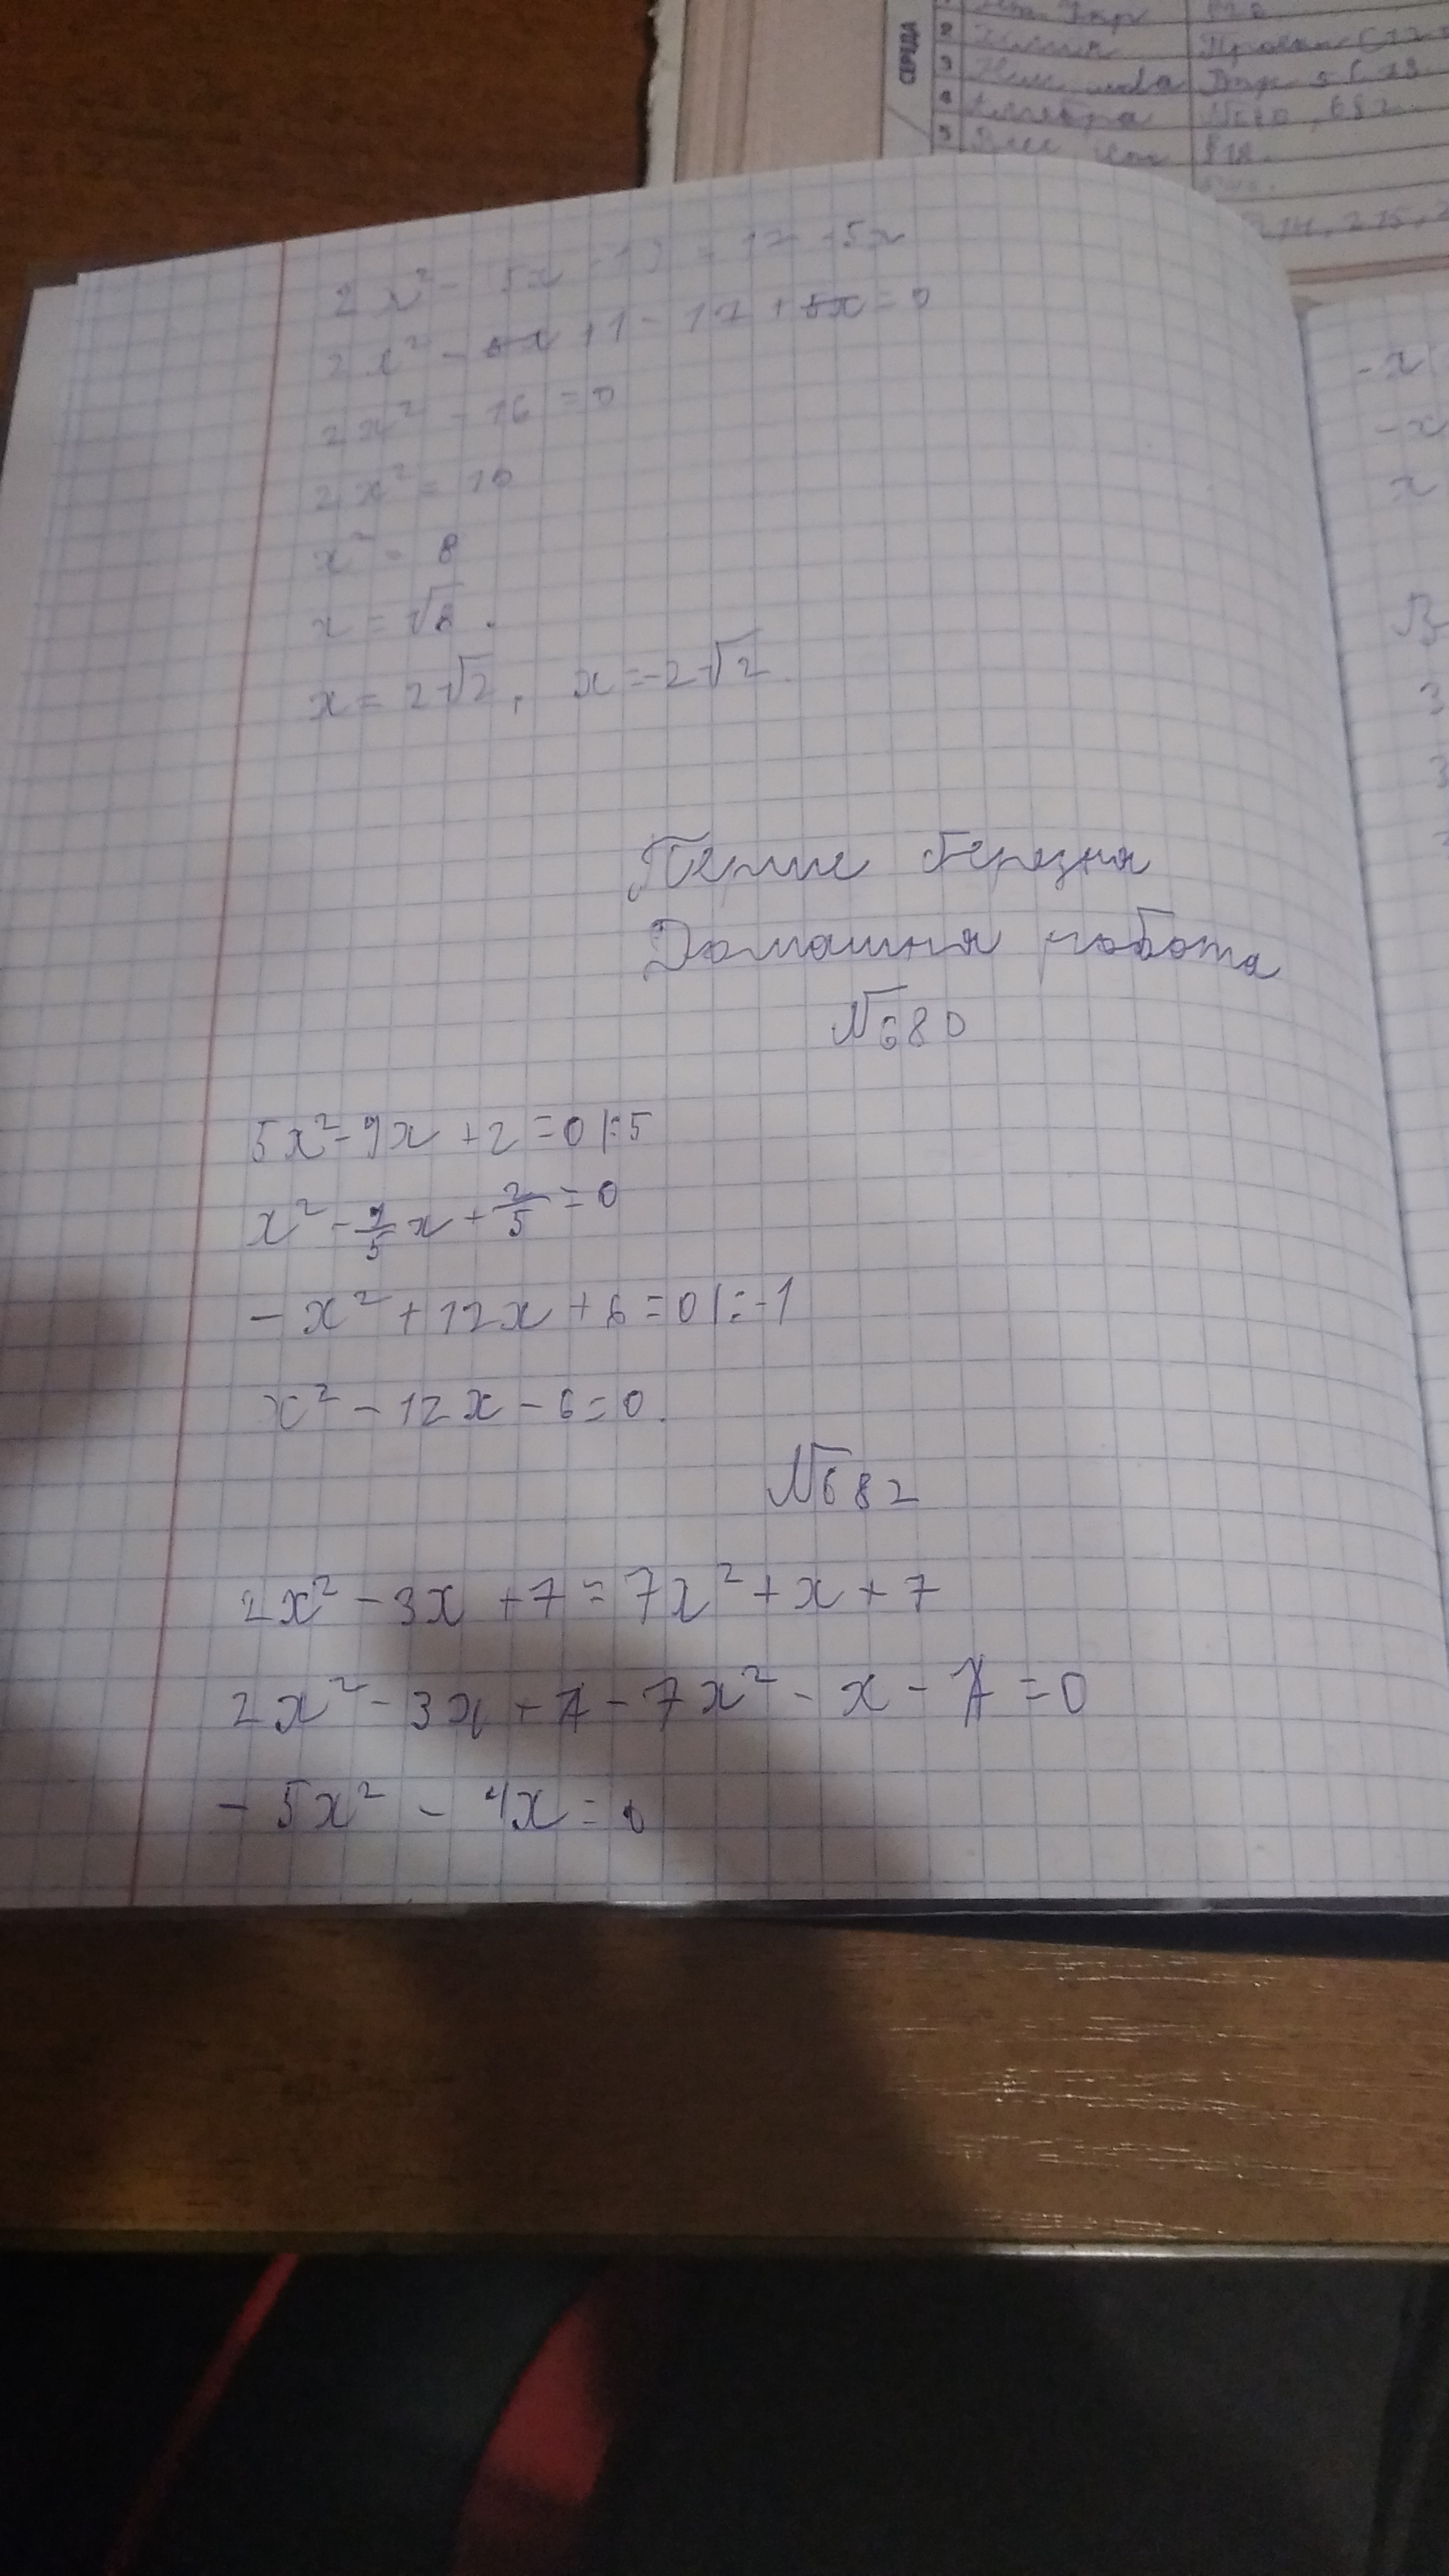 СЕРЕДА
2
3
4 Алгебра №680, 682
5
2x² - 5x + 1 = 17 - 5x
2x² - 5x + 1 - 17 + 5x = 0
2x² - 16 = 0
2x² = 16
x² = 8
x = √8.
x = 2√2, x = -2√2.
Перше березня
Домашня робота
№680
5x² - 9x + 2 = 0 |:5
x² - 9/5 x + 2/5 = 0
- x² + 12x + 6 = 0 |:-1
x² - 12x - 6 = 0.
№682
2x² - 3x + 7 = 7x² + x + 7
2x² - 3x + 7 - 7x² - x - 7 = 0
- 5x² - 4x = 0
-x
-x
x